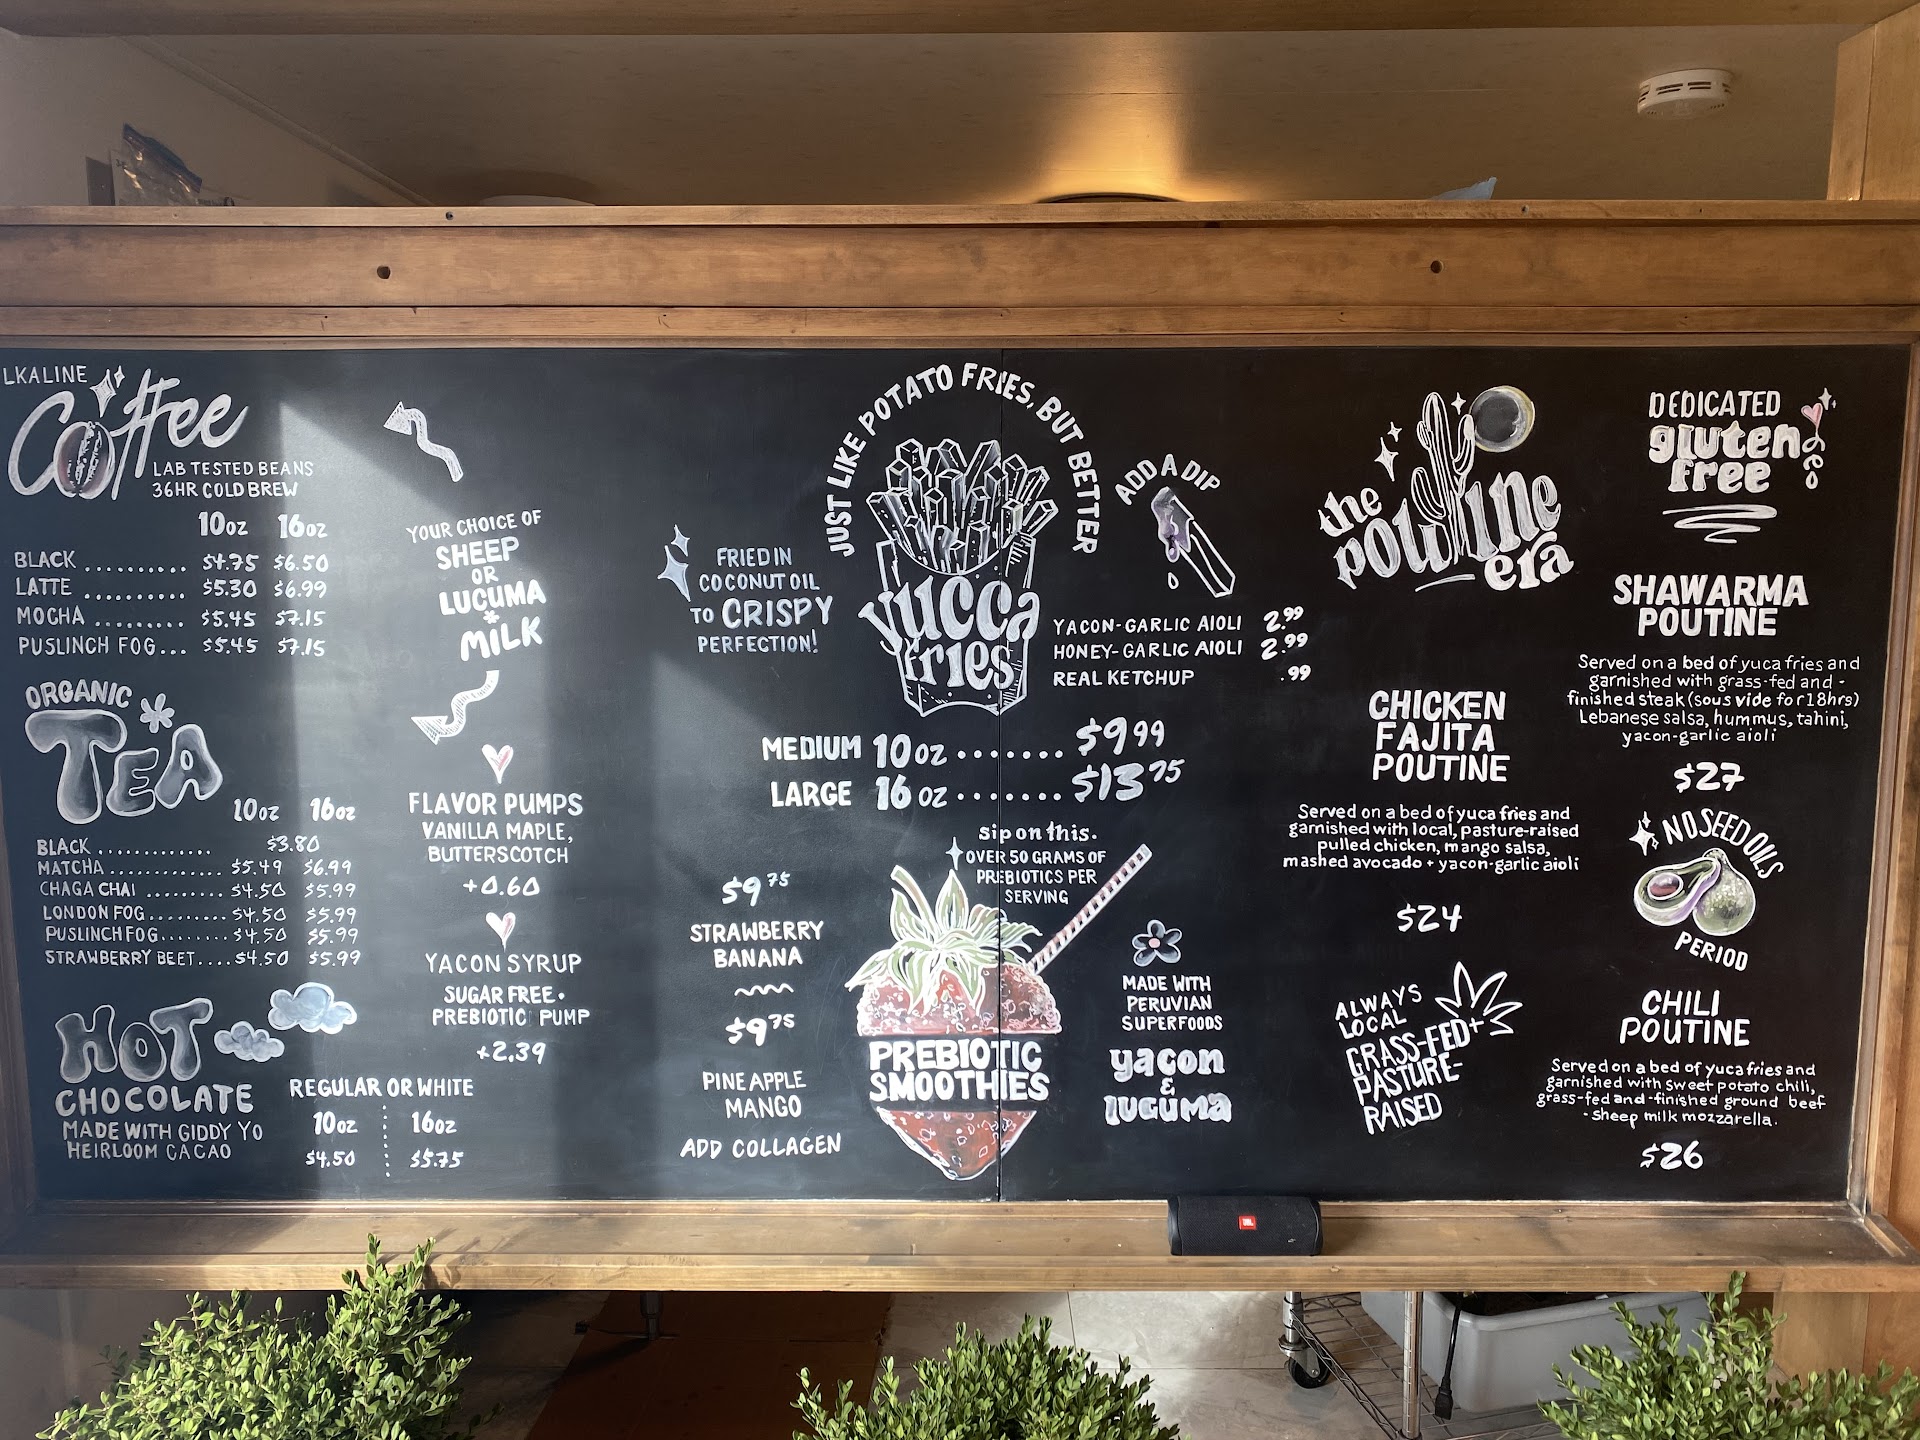 LKALINE
Coffee
LAB TESTED BEANS
36HR COLD BREW
10oz 16oz
BLACK .......... $4.75 $6.50
LATTE .......... $5.30 $6.99
MOCHA ......... $5.45 $7.15
PUSLINCH FOG... $5.45 $7.15
ORGANIC
TEA
10oz 16oz
BLACK ............ $3.80
MATCHA ............. $5.49 $6.99
CHAGA CHAI ......... $4.50 $5.99
LONDON FOG ........ $4.50 $5.99
PUSLINCH FOG ........ $4.50 $5.99
STRAWBERRY BEET .... $4.50 $5.99
HOT
CHOCOLATE
MADE WITH GIDDY YO
HEIRLOOM CACAO
REGULAR OR WHITE
10oz 16oz
$4.50 $5.75
YOUR CHOICE OF
SHEEP
OR
LUCUMA
*
MILK
FLAVOR PUMPS
VANILLA MAPLE,
BUTTERSCOTCH
+0.60
YACON SYRUP
SUGAR FREE •
PREBIOTIC PUMP
+2.39
FRIED IN
COCONUT OIL
TO CRISPY
PERFECTION!
JUST LIKE POTATO FRIES, BUT BETTER
yucca
fries
ADD A DIP
YACON-GARLIC AIOLI 2.99
HONEY-GARLIC AIOLI 2.99
REAL KETCHUP .99
MEDIUM 10oz ....... $9.99
LARGE 16oz ....... $13.75
sip on this.
OVER 50 GRAMS OF
PREBIOTICS PER
SERVING
$9.75
STRAWBERRY
BANANA
$9.75
PINEAPPLE
MANGO
ADD COLLAGEN
PREBIOTIC
SMOOTHIES
MADE WITH
PERUVIAN
SUPERFOODS
yacon
&
lucuma
the
poutine
era
CHICKEN
FAJITA
POUTINE
Served on a bed of yuca fries and
garnished with local, pasture-raised
pulled chicken, mango salsa,
mashed avocado + yacon-garlic aioli
$24
ALWAYS
LOCAL
GRASS-FED +
PASTURE-
RAISED
DEDICATED
gluten
free
SHAWARMA
POUTINE
Served on a bed of yuca fries and
garnished with grass-fed and -
finished steak (sous vide for 18hrs)
Lebanese salsa, hummus, tahini,
yacon-garlic aioli
$27
NO SEED OILS
PERIOD
CHILI
POUTINE
Served on a bed of yuca fries and
garnished with sweet potato chili,
grass-fed and -finished ground beef
- sheep milk mozzarella.
$26
JBL